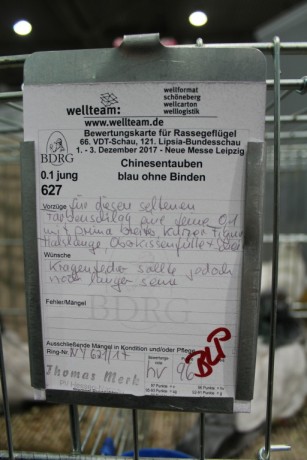 wellteam:
wellformat
schöneberg
wellcarton
welllogistik
www.wellteam.de
Bewertungskarte für Rassegeflügel
66. VDT-Schau, 121. Lipsia-Bundesschau
1. - 3. Dezember 2017 - Neue Messe Leipzig
BDRG
Chinesentauben
blau ohne Binden
0.1 jung
627
Vorzüge
für diesen seltenen
Farbenschlag eine feine 0.1
mit prima breite kurzer Figur
Halslänge, Oberkissenfülle +
Wünsche
Kragenfeder sollte jedoch
noch länger sein
Fehler/Mängel
BDRG
Ausschließende Mängel in Kondition und/oder Pflege
Ring-Nr.
Bewertungs-
note
hv 96
BLP
Thomas Merk